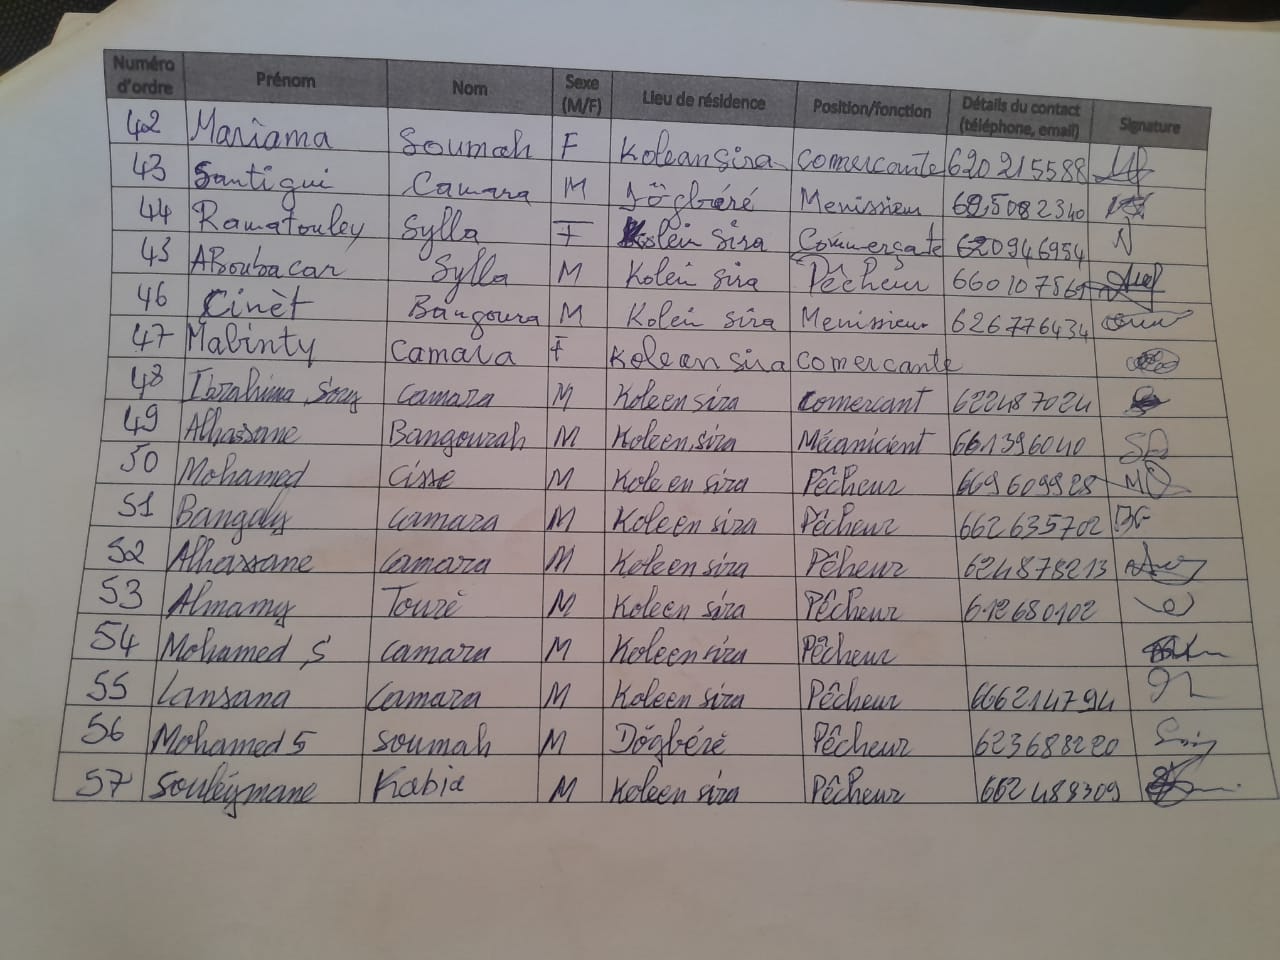 Numéro d'ordre Prénom Nom Sexe (M/F) Lieu de résidence Position/fonction Détails du contact (téléphone, email) Signature
42 Mariama Soumah F Koleansira comercante 620215588
43 Santigui Camara M Dögbéré Menissieu 625082340
44 Ramatouley Sylla F Kolein Sira Commerçate 620946954
45 ABoubacar Sylla M Kolein sira Pêcheur 660107569
46 Cinèt Bangoura M Kolein sira Menissieur 626776434
47 Mabinty camara F Koleansira comercante
48 Ibrahima Sory camara M Koleensira comercant 622487024
49 Alhassane Bangourah M Koleensira Mécanicient 661396040
50 Mohamed cisse M Koleensira Pêcheur 669609928
51 Bangaly camara M Koleensira Pêcheur 662635702
52 Alhassane camara M Koleensira Pêcheur 624878213
53 Almamy Touré M Koleensira Pêcheur 612680102
54 Mohamed S camara M Koleensira Pêcheur
55 Lansana camara M Koleensira Pêcheur 666214794
56 Mohamed S soumah M Dögbéré Pêcheur 623688220
57 Souleymane Kabia M Koleensira Pêcheur 662488309